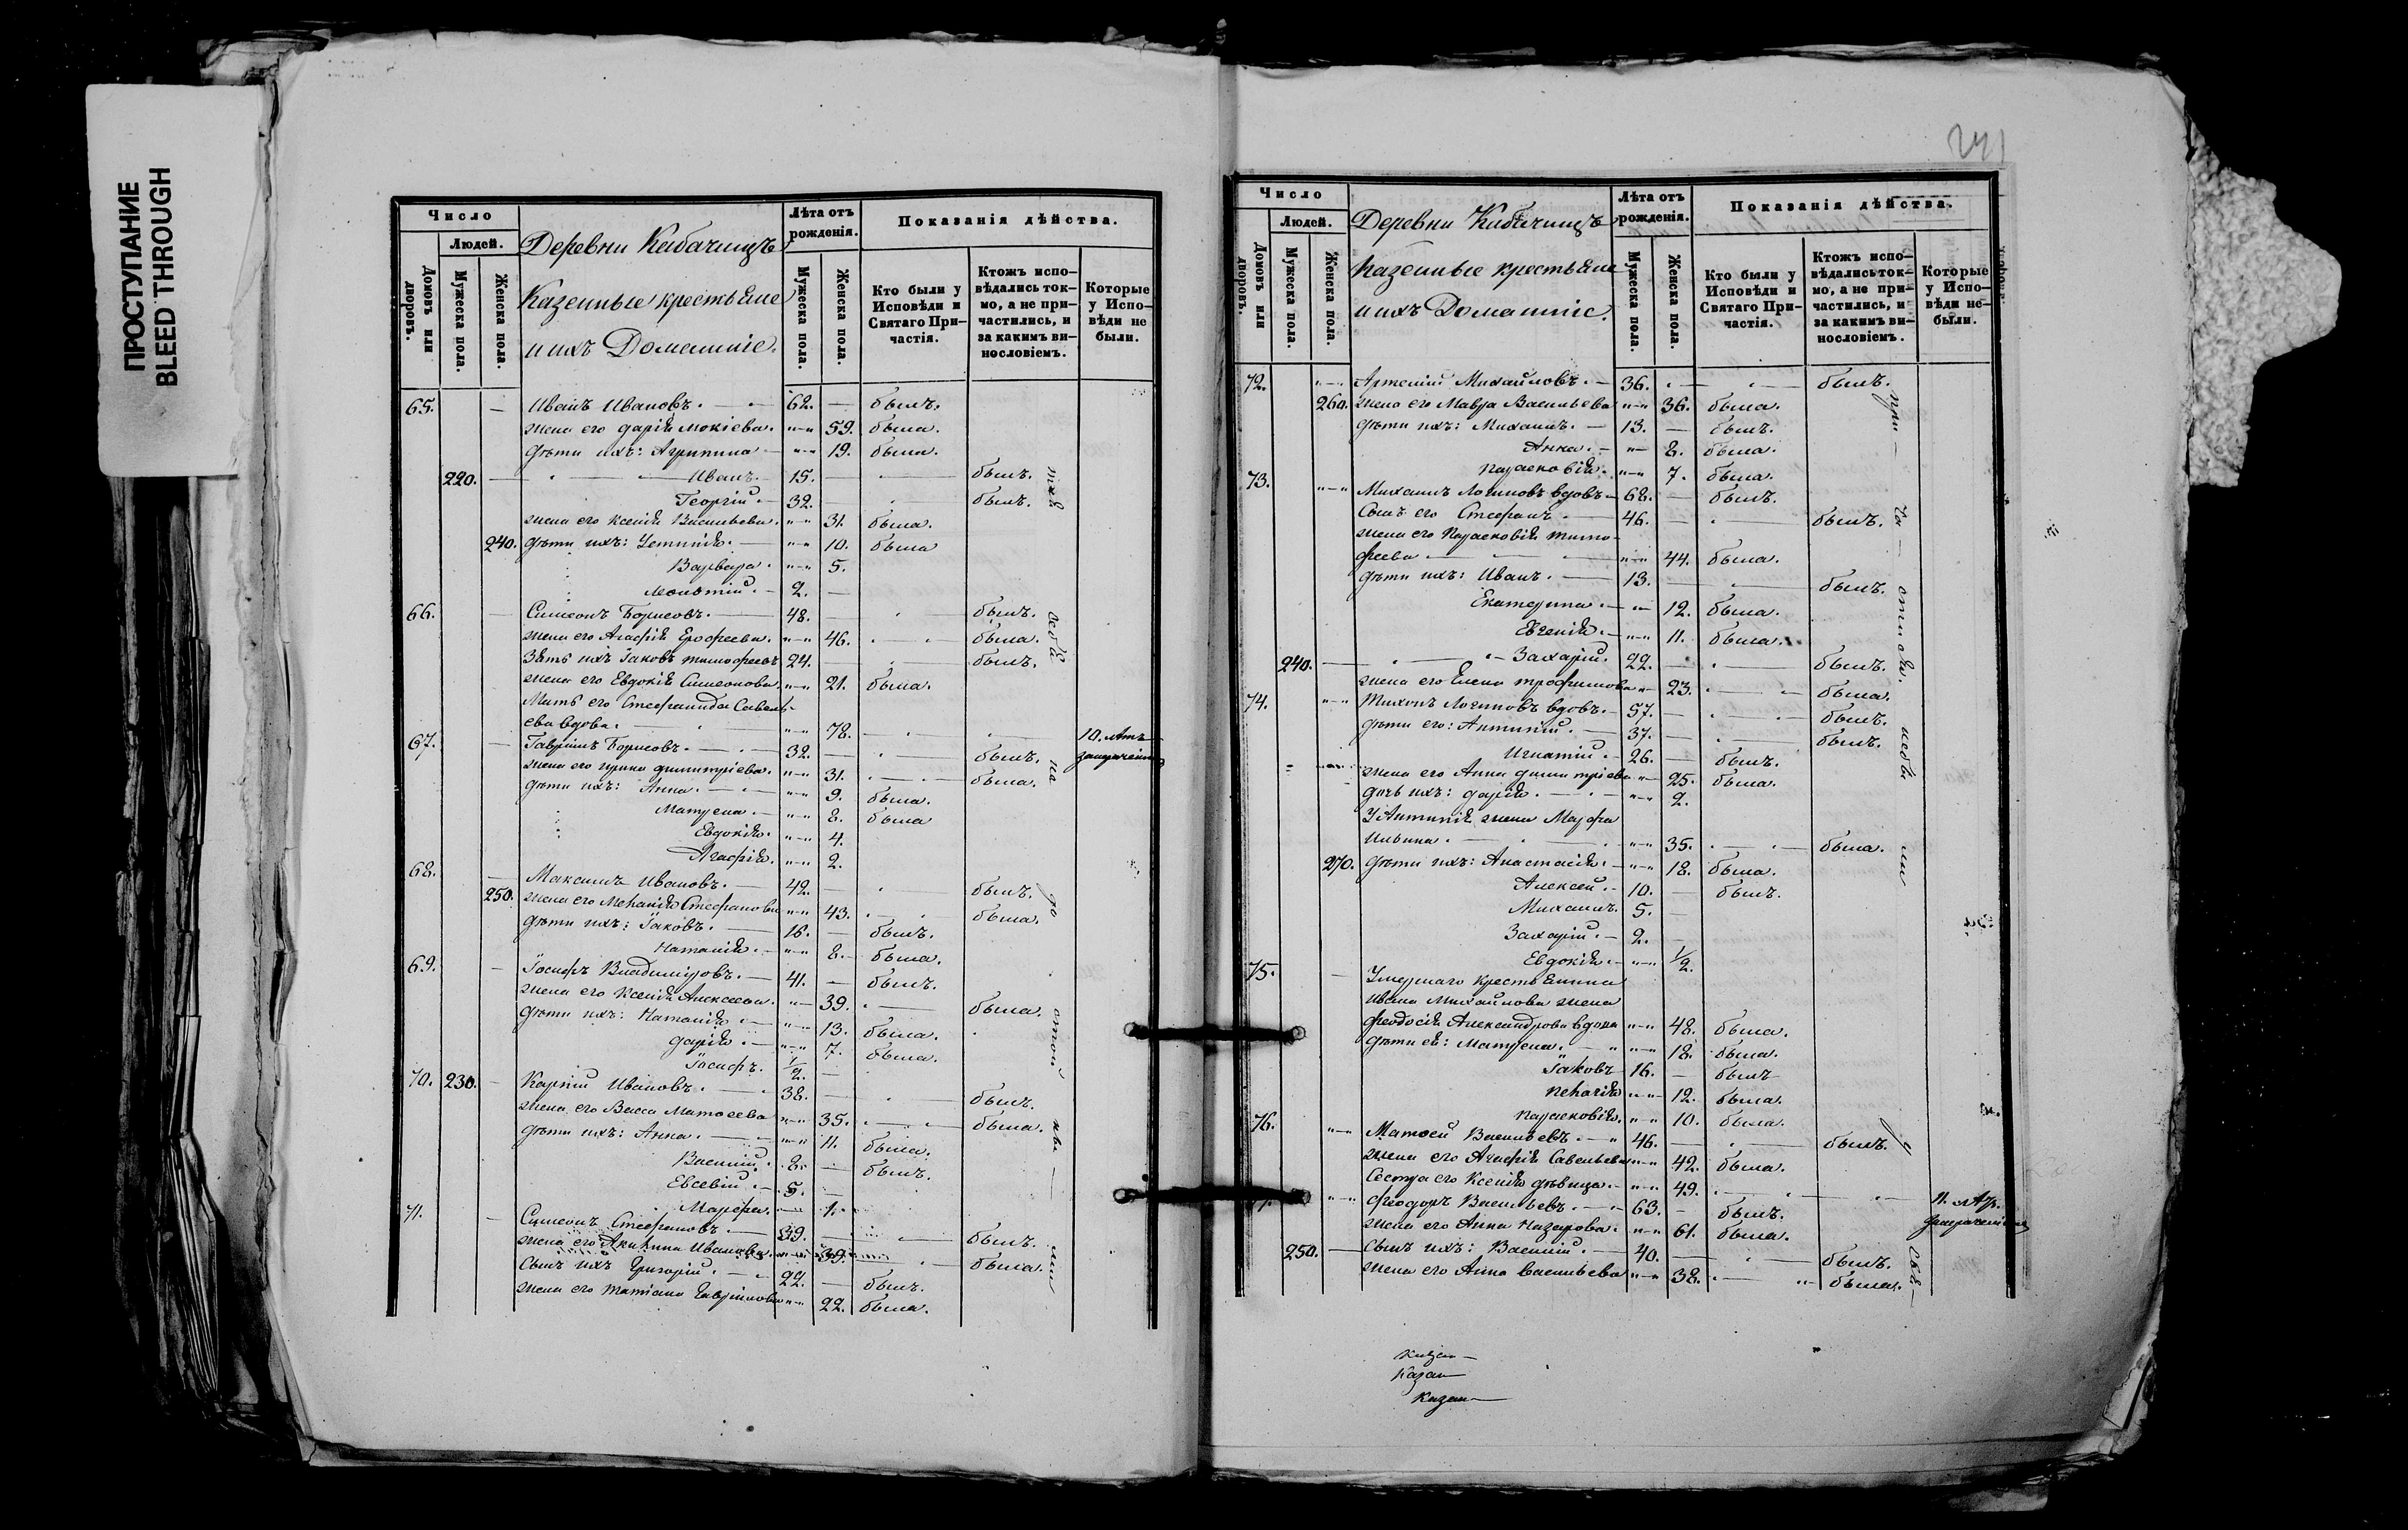 ПРОСТУПАНИЕ
BLEED THROUGH
Число
Людей.
Домовъ или дворовъ.
Мужеска пола.
Женска пола.
Деревни Кабачищъ
Казенные крестьяне
и ихъ Домашніе.
Лѣта отъ рожденія.
Мужеска пола.
Женска пола.
Показанія дѣйства.
Кто были у Исповѣди и Святаго При-частія.
Ктожъ испо-вѣдались ток-мо, а не при-частились, и за какимъ ви-нословіемъ.
Которые у Испо-вѣди не были.
65. — Иванъ Ивановъ. — 62. — былъ.
жена его Дарія Мокіева. "—" 59. была.
дѣти ихъ: Агрипина — "—" 19. была.
220. — Иванъ. 15. — былъ.
Георгій. — 32. — былъ.
жена его Ксенія Васильева. "—" 31. была.
240. дѣти ихъ: "—" 10. была
Варвара. "—" 5.
Леонтій. — 2. —
66. — Симеонъ Борисовъ. — 48. — былъ.
жена его Агафія Ерофеева. "—" 46. была.
Зять ихъ Іаковъ Тимофеевъ 24. — былъ.
жена его Евдокія Симеонова. "—" 21. была.
Мать его Стефанида Савель-
ева вдова. "—" 78. 10. лѣтъ
67. — Гавріилъ Борисовъ. — 32. — былъ.
жена его Ирина Димитріева. "—" 31. была.
дѣти ихъ: Анна. — "—" 9. была.
Матрена. — "—" 8. была
Евдокія. "—" 4.
Агафія. "—" 2.
68. — Максимъ Ивановъ. — 42. — былъ.
250. жена его Меланія Стефанова "—" 43. была.
дѣти ихъ: Іаковъ. — 16. — былъ.
Наталія. — "—" 8. — была.
69. — Іосифъ Владиміровъ. — 41. — былъ.
жена его Ксенія Алексеева. "—" 39. — была.
дѣти ихъ: Наталія — "—" 13. была.
Дарія. — "—" 7. была.
Іосифъ. 1/2. —
70. 230. — Карпій Ивановъ. — 38. — былъ.
жена его Васса Матѳеева "—" 35. была.
дѣти ихъ: Анна. — "—" 11. была.
Василій. 8. — былъ.
Евсевій. — 5. —
Марфа. "—" 1.
71. — Симеонъ Стефановъ. — 39. — былъ.
жена его Акилина Иванова. "—" 39. была.
Сынъ ихъ Григорій. — 22. — былъ.
жена его Татіана Гавріилова "—" 22. была.
241
Число
Людей.
Домовъ или дворовъ.
Мужеска пола.
Женска пола.
Деревни Кабачищъ
Казенные крестьяне
и ихъ Домашніе.
Лѣта отъ рожденія.
Мужеска пола.
Женска пола.
Показанія дѣйства.
Кто были у Исповѣди и Святаго При-частія.
Ктожъ испо-вѣдались ток-мо, а не при-частились, и за какимъ ви-нословіемъ.
Которые у Испо-вѣди не были.
72. "—" Артемій Михаиловъ. — 36. — былъ.
260. жена его Мавра Васильева "—" 36. была.
дѣти ихъ: Михаилъ. — 13. — былъ.
Анна. — "—" 8. была.
Парасковія. "—" 7. была.
73. "—" Михаилъ Логиновъ вдовъ — 68. — былъ.
Сынъ его Стефанъ. — 46. — былъ.
жена его Парасковія Тимо-
феева — "—" 44. была.
дѣти ихъ: Иванъ. — 13. — былъ.
Екатерина. — "—" 12. была.
Евгенія. — "—" 11. была.
240. — Захарій. 22. — былъ.
жена его Елена Трофимова "—" 23. — была.
74. "—" Тихонъ Логиновъ вдовъ. — 57. — былъ.
дѣти его: Антипій. — 37. — былъ.
Игнатій. — 26. — былъ.
жена его Анна Димитріева "—" 25. была.
дочь ихъ: Дарія. — "—" 2.
У Антипія жена Марфа
Ильина. "—" 35. — была.
270. дѣти ихъ: Анастасія. — "—" 18. была.
Алексей. — 10. — былъ.
Михаилъ. 5. —
Захарій. — 2. —
Евдокія. — "—" 1/2.
75. — Умершаго крестьянина
Ивана Михаилова жена
Феодосія Александрова вдова "—" 48. была.
дѣти ея: Матрена. — "—" 18. была.
Іаковъ 16. — былъ
Пелагія "—" 12. была.
Парасковія. "—" 10. была.
76. "—" Матѳей Васильевъ. — 46. — былъ.
жена его Агафія Савельева "—" 42. была.
Сестра его Ксенія дѣвица. — "—" 49. — 11. лѣтъ
"—" Феодоръ Васильевъ. — 63. — былъ.
жена его Анна Назарова. "—" 61. была.
250. — Сынъ ихъ: Василій. — 40. — былъ.
жена его Анна Васильева "—" 38. — была.
Казен—
Казен—
Казен—